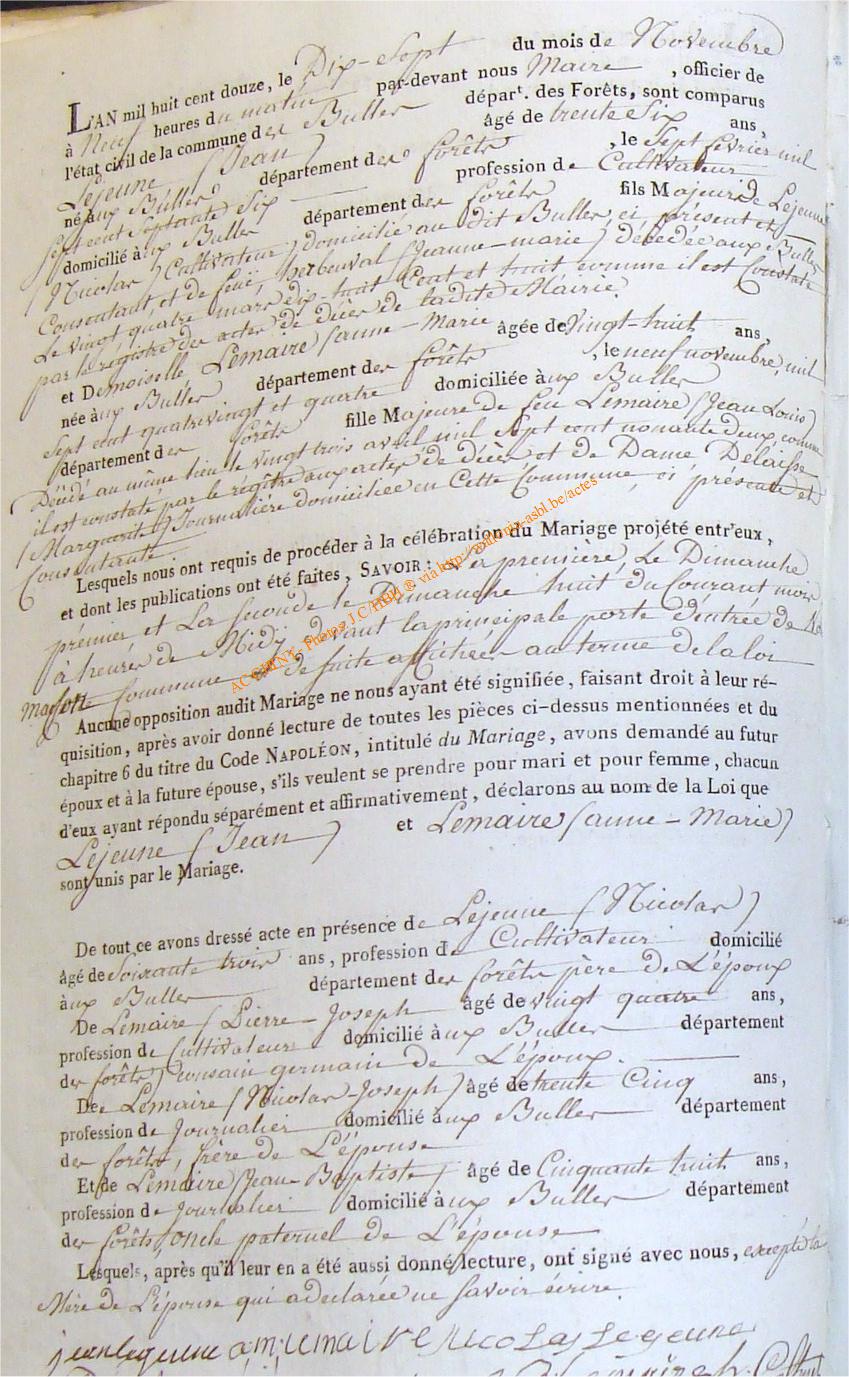 L'AN mil huit cent douze, le Dix-Sept du mois de Novembre
à Neuf heures du matin par-devant nous Maire, officier de
l'état civil de la commune des Bulles départ. des Forêts, sont comparus
Lejeune (Jean) âgé de trente Six ans,
né aux Bulles département des forêts, le Sept fevrier mil
Sept cent Septante Six profession de Cultivateur
domicilié aux Bulles département des forêts fils Majeur de Lejeune
(Nicolas) Cultivateur, domicilié au dit Bulles, ci présent et
Consentant et de feüe herbeuval (Jeanne-marie) Décédée aux Bulles
Le vingt quatre mars dix-huit Cent et huit comme il est Constaté
par le régistre des actes de décès de ladite Mairie.
et Demoiselle Lemaire (anne-Marie âgée de vingt-huit ans,
née aux Bulles département des forêts, le neuf novembre, mil
Sept cent quatrevingt et quatre domiciliée aux Bulles
département des forêts fille Majeure de feu Lemaire (Jean Louis)
Décédé au même lieu le vingt trois avril mil Sept cent nonante deux, comme
il est constaté par le régitre aux actes de décès et de Dame Delaisse
(Marguerite) Journalière domiciliée en Cette Commune, ci présente et
Consentante.
Lesquels nous ont requis de procéder à la célébration du Mariage projété entr'eux,
et dont les publications ont été faites, SAVOIR: La première, Le Dimanche
prémier et La seconde le Dimanche huit du Courant mois
à heures de Midi devant la principale porte d'entrée de La
maison Commune et de suite affichées au terme de la loi
Aucune opposition audit Mariage ne nous ayant été signifiée, faisant droit à leur ré-
quisition, après avoir donné lecture de toutes les pièces ci-dessus mentionnées et du
chapitre 6 du titre du Code NAPOLÉON, intitulé du Mariage, avons demandé au futur
époux et à la future épouse, s'ils veulent se prendre pour mari et pour femme, chacun
d'eux ayant répondu séparément et affirmativement, déclarons au nom de la Loi que
Lejeune (Jean) et Lemaire (anne-Marie)
sont unis par le Mariage.
De tout ce avons dressé acte en présence de Lejeune (Nicolas)
âgé de Soixante trois ans, profession de Cultivateur domicilié
aux Bulles département des forêts père de L'époux
De Lemaire (Pierre-Joseph âgé de vingt quatre ans,
profession de Cultivateur domicilié aux Bulles département
des forêts) cousain germain de L'époux.
De Lemaire (Nicolas Joseph) âgé de trente Cinq ans,
profession de Journalier domicilié aux Bulles département
des forêts, frère de L'épouse
Et de Lemaire (Jean Baptiste) âgé de Cinquante huit ans,
profession de Journalier domicilié aux Bulles département
des forêts, oncle paternel de L'épouse
Lesquels, après qu'il leur en a été aussi donné lecture, ont signé avec nous, excepté la
Mère de L'épouse qui a declarée ne Savoir écrire.
jean lejeune a m lemaire nicolas Lejeune